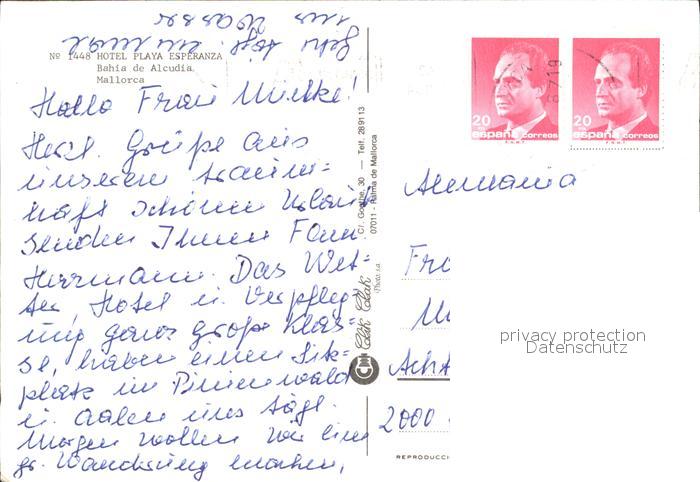 Nº 1448 HOTEL PLAYA ESPERANZA
Bahía de Alcudia
Mallorca
Hallo Frau Mielke!
Herzl. Grüße aus
unserem traum-
haft schönen Urlaub
senden Ihnen Fam.
Herrmann. Das Wet-
ter, Hotel u. Verpfleg-
ung ganz große Klas-
se, haben einen Sitz-
platz im Pinienwald
u. aalen uns tägl.
Morgen wollen wir eine
gr. Wanderung machen,
gehn tägl. einmal
ins Wasser
C/. Goethe, 30 — Telf. 28 91 13
07011 - Palma de Mallorca
Click Clak
Photo s.a.
20
españa correos
F.N.M.T
20
españa correos
F.N.M.T
Alemania
Fra
M
2000
REPRODUCCI
privacy protection
Datenschutz